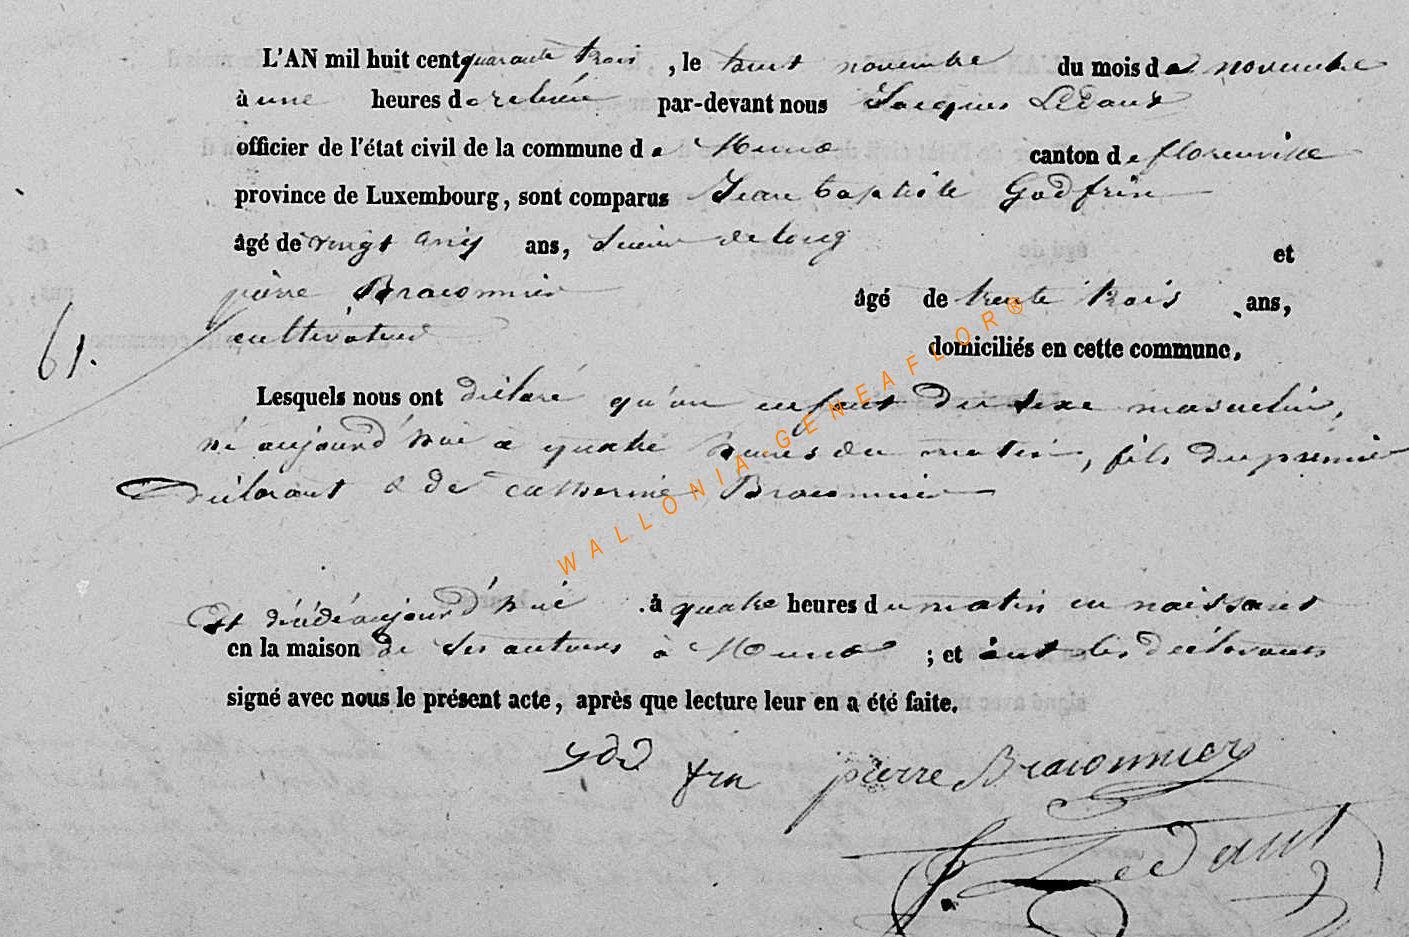 L'AN mil huit cent quarante trois, le huit novembre du mois de novembre
à une heures de relevée par-devant nous Jacques Ledaut
officier de l'état civil de la commune de Muno canton de florenville
province de Luxembourg, sont comparus Jean baptiste Godfrin
âgé de vingt cinq ans, Scieur de long et
pierre Braconnier âgé de trente trois ans,
61. cultivateur domiciliés en cette commune,
Lesquels nous ont déclaré qu'un enfant Du sexe masculin,
né aujourd'hui a quatre heures du matin, fils du premier
Déclarant & de catherine Braconnier
Est décédé aujourd'hui à quatre heures du matin en naissant
en la maison de ses auteurs à Muno ; et ont les Déclarants
signé avec nous le présent acte, après que lecture leur en a été faite.
god frin pierre Braconnier
J. Ledaut
WALLONIA GENEAFLOR®